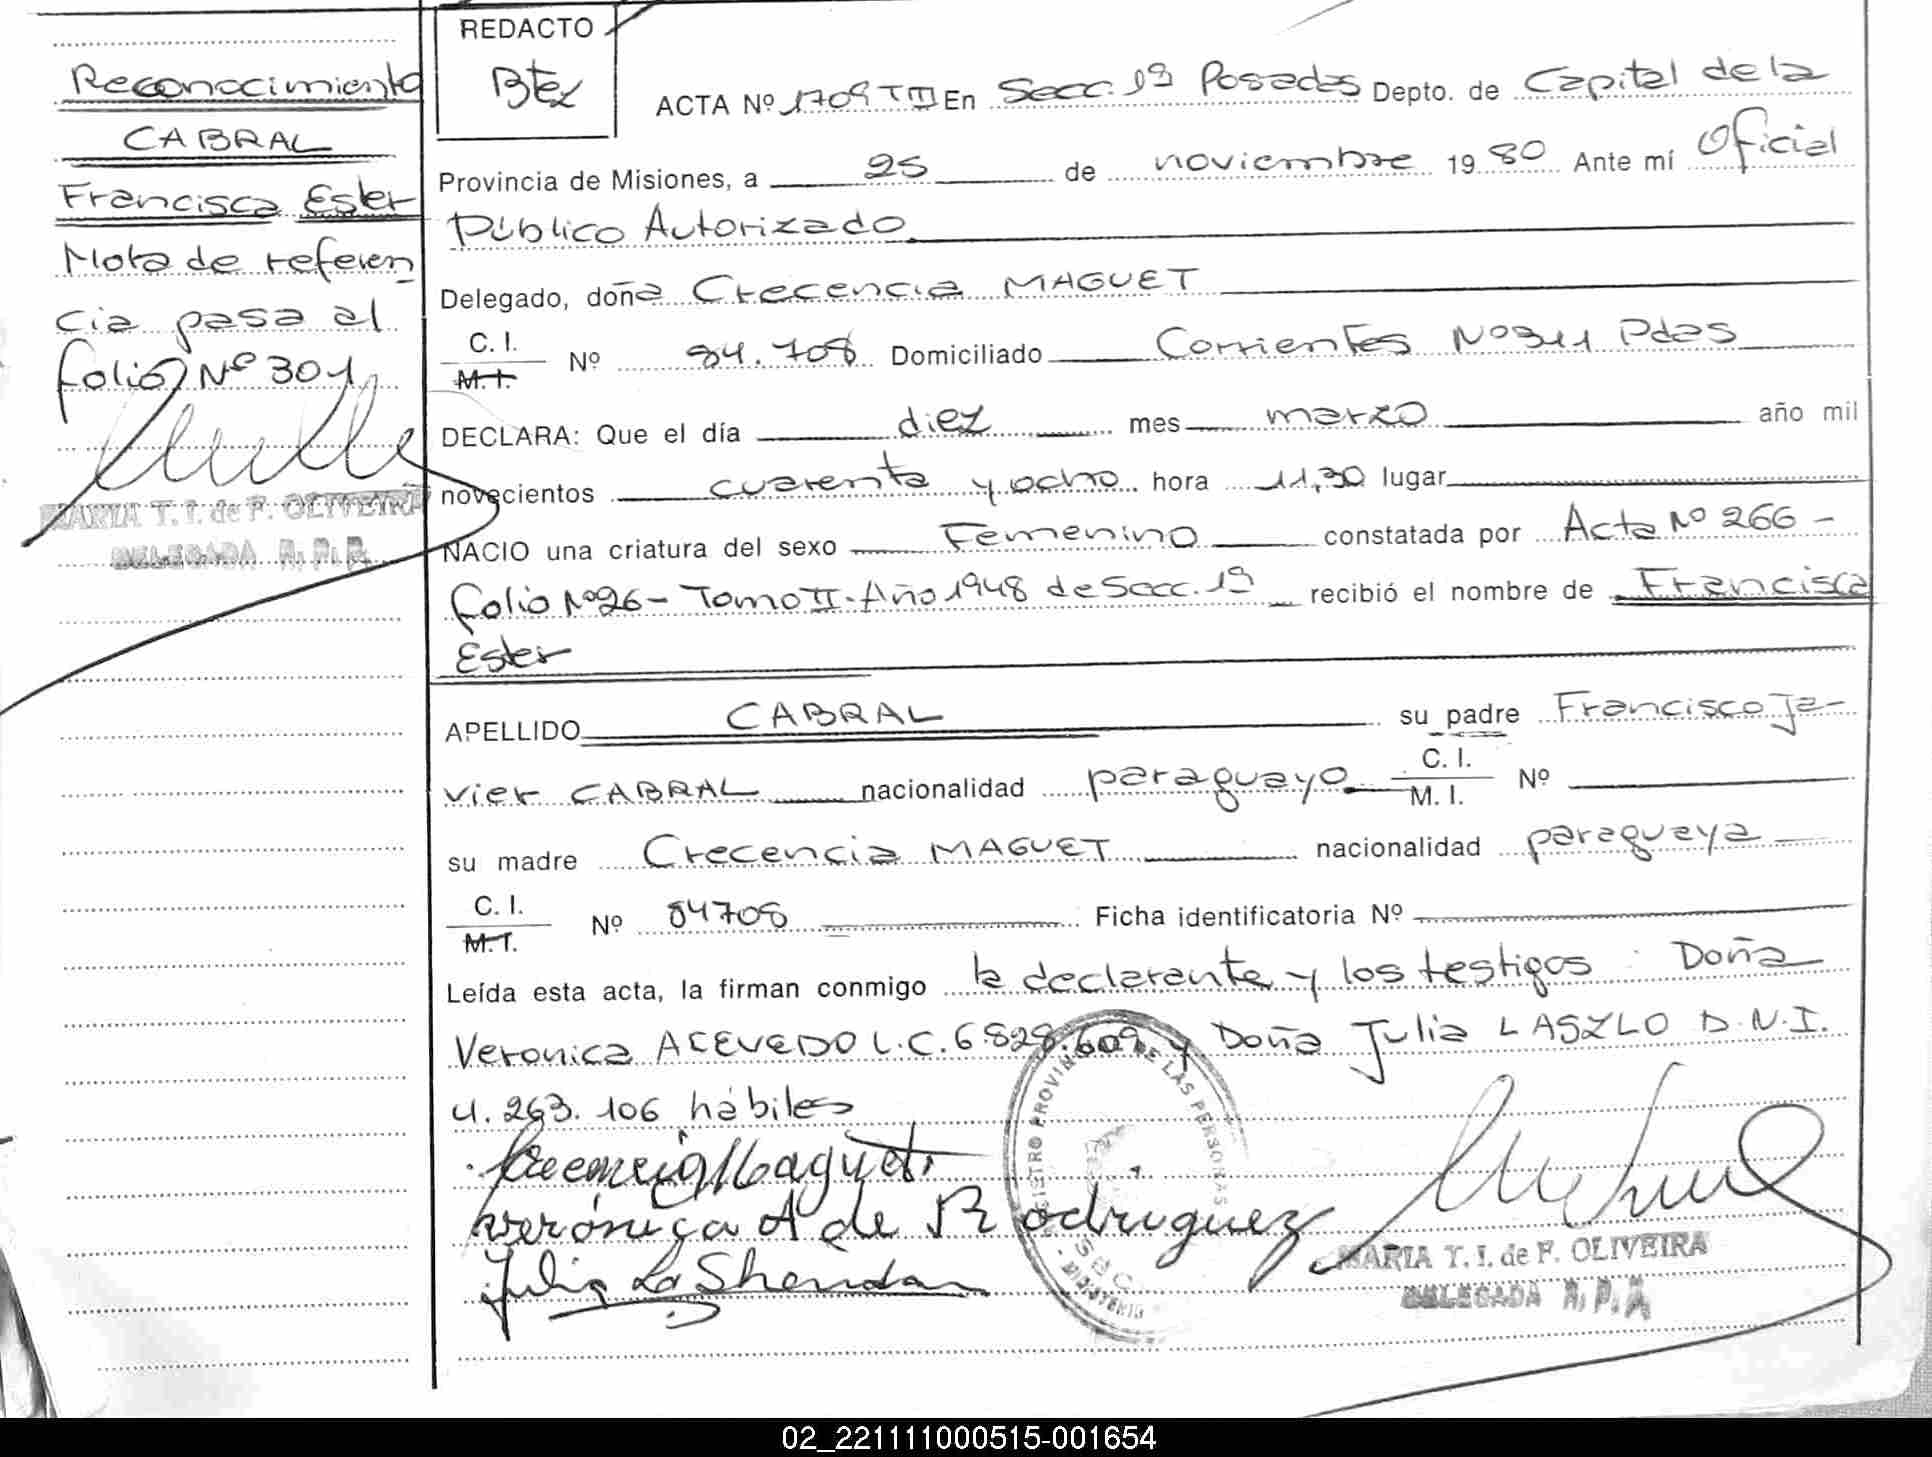 Reconocimiento
CABRAL
Francisca Ester
Nota de referen
cia pasa al
folio Nº 301
MARIA T. I. de F. OLIVEIRA
DELEGADA R. P. P.
REDACTO
Btez
ACTA Nº 1709 TIII En Secc. 1ª Posadas Depto. de Capital de la
Provincia de Misiones, a 25 de noviembre 1980 Ante mí Oficial
Público Autorizado
Delegado, doña Crecencia MAGUET
C. I.
M. I.
Nº 84.708 Domiciliado Corrientes Nº 311 Pdas
DECLARA: Que el día diez mes marzo año mil
novecientos cuarenta y ocho hora 11,30 lugar
NACIO una criatura del sexo Femenino constatada por Acta Nº 266 -
folio Nº 26 - Tomo II - Año 1948 de Secc. 1ª recibió el nombre de Francisca
Ester
APELLIDO CABRAL su padre Francisco Ja-
vier CABRAL nacionalidad paraguayo C. I.
M. I. Nº
su madre Crecencia MAGUET nacionalidad paraguaya
C. I.
M. I.
Nº 84708 Ficha identificatoria Nº
Leída esta acta, la firman conmigo la declarante y los testigos: Doña
Veronica ACEVEDO L.C. 6.828.609 y Doña Julia LASZLO D.N.I.
4.263.106 hábiles
Crecencia Maguet
Verónica A de Rodriguez
Julia
REGISTRO PROVINCIAL DE LAS PERSONAS
MINISTERIO
MARIA T. I. de F. OLIVEIRA
DELEGADA R. P. P.
02_221111000515-001654